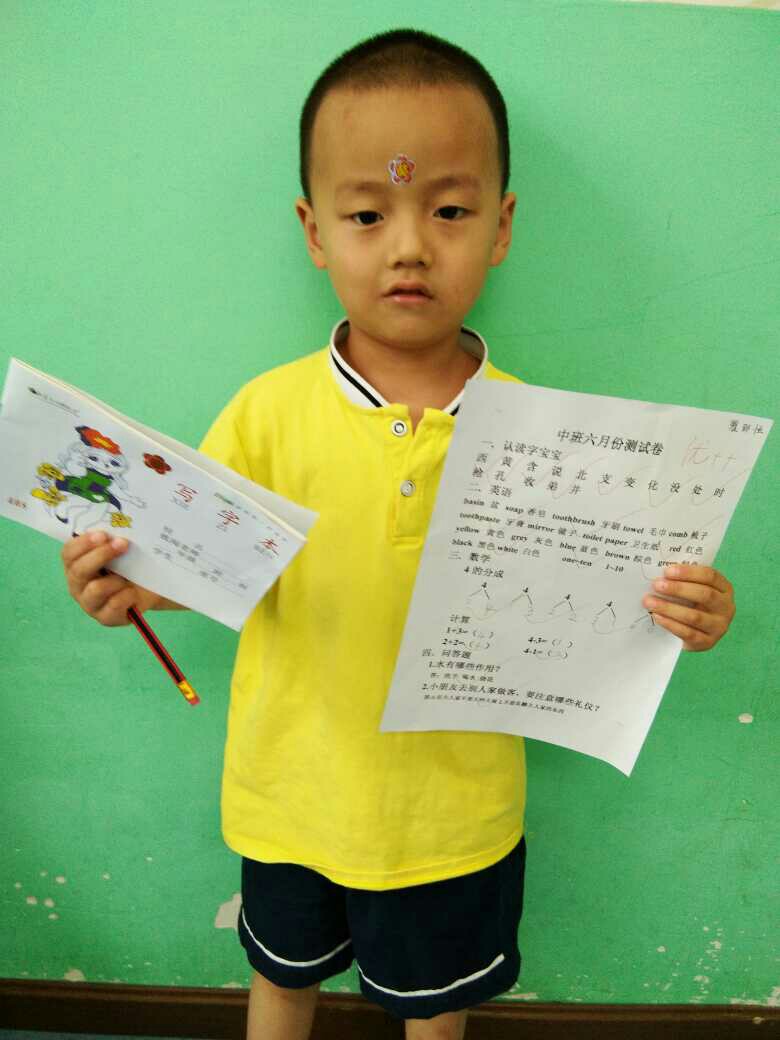 写字本
XIE
ZI
BEN
班
学生
中班六月份测试卷
优++
一、认读字宝宝
西 黄 含 说 北 支 变 化 没 处 时
枪 孔 收 弟 井
二、英语
basin 盆 soap 香皂 toothbrush 牙刷 towel 毛巾 comb 梳子
toothpaste 牙膏 mirror 镜子 toilet paper 卫生纸 red 红色
yellow 黄色 grey 灰色 blue 蓝色 brown 棕色
black 黑色 white 白色 one-ten 1-10
三、数学
4的分成
4 4 4 4 4
计算
1+3=(4) 4-3=(1)
2+2=(4) 4-1=(3)
四、问答题
1.水有哪些作用?
答：洗手 喝水 浇花
2.小朋友去别人家做客，要注意哪些礼仪?